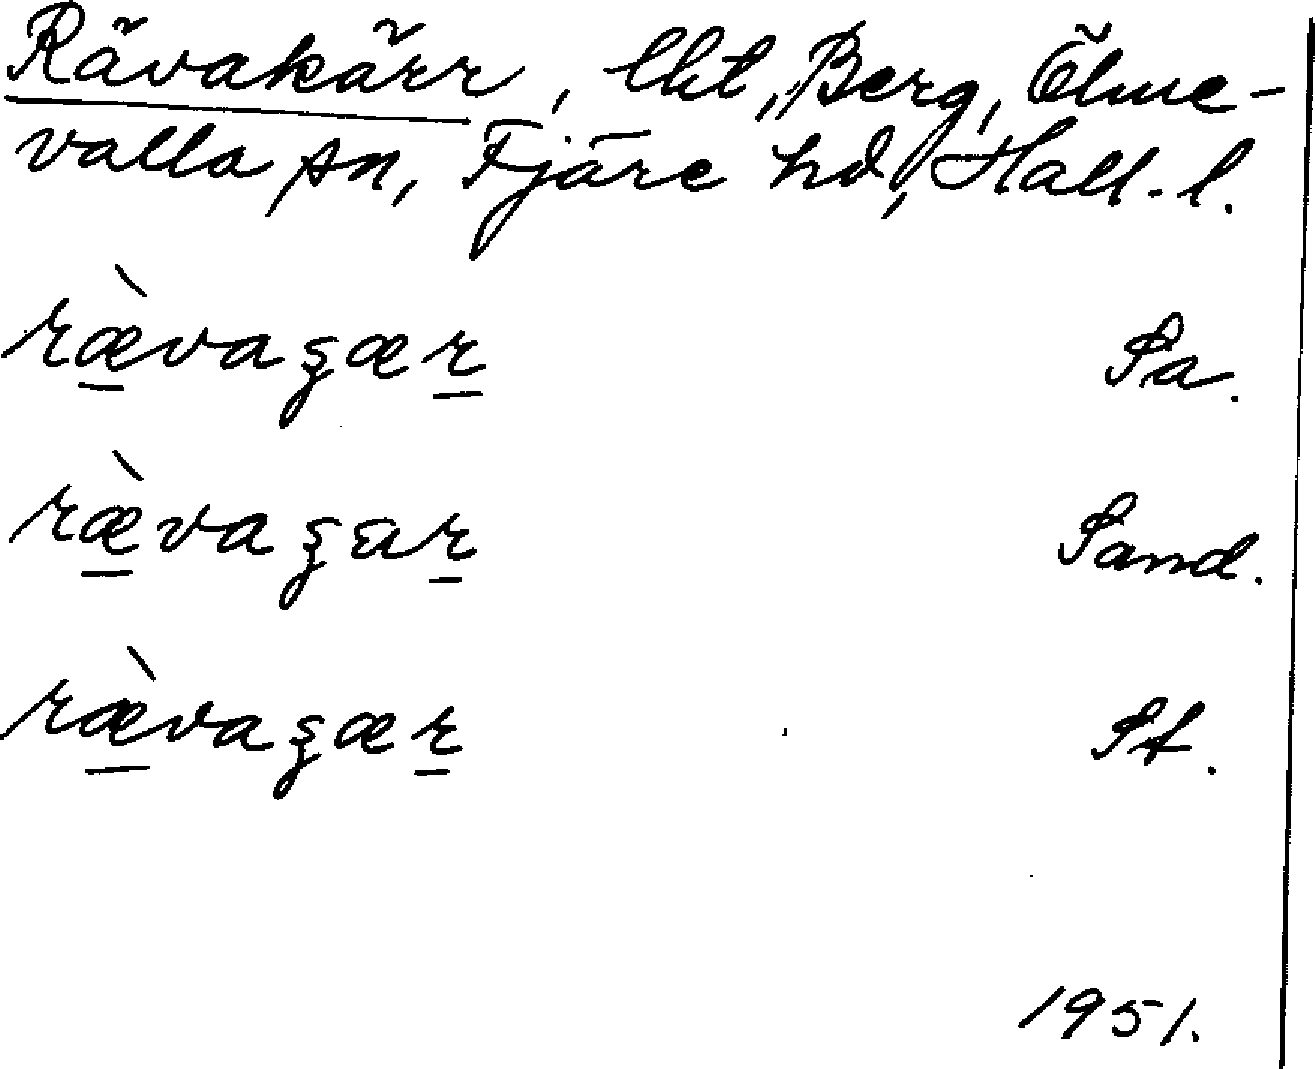 Rävakärr, lht, Berg, Ölme-
valla sn, Fjäre hd, Hall. l.
ræ̀vaʒær Sa.
ræ̀vaʒar Sand.
ræ̀vaʒær St.
1951.